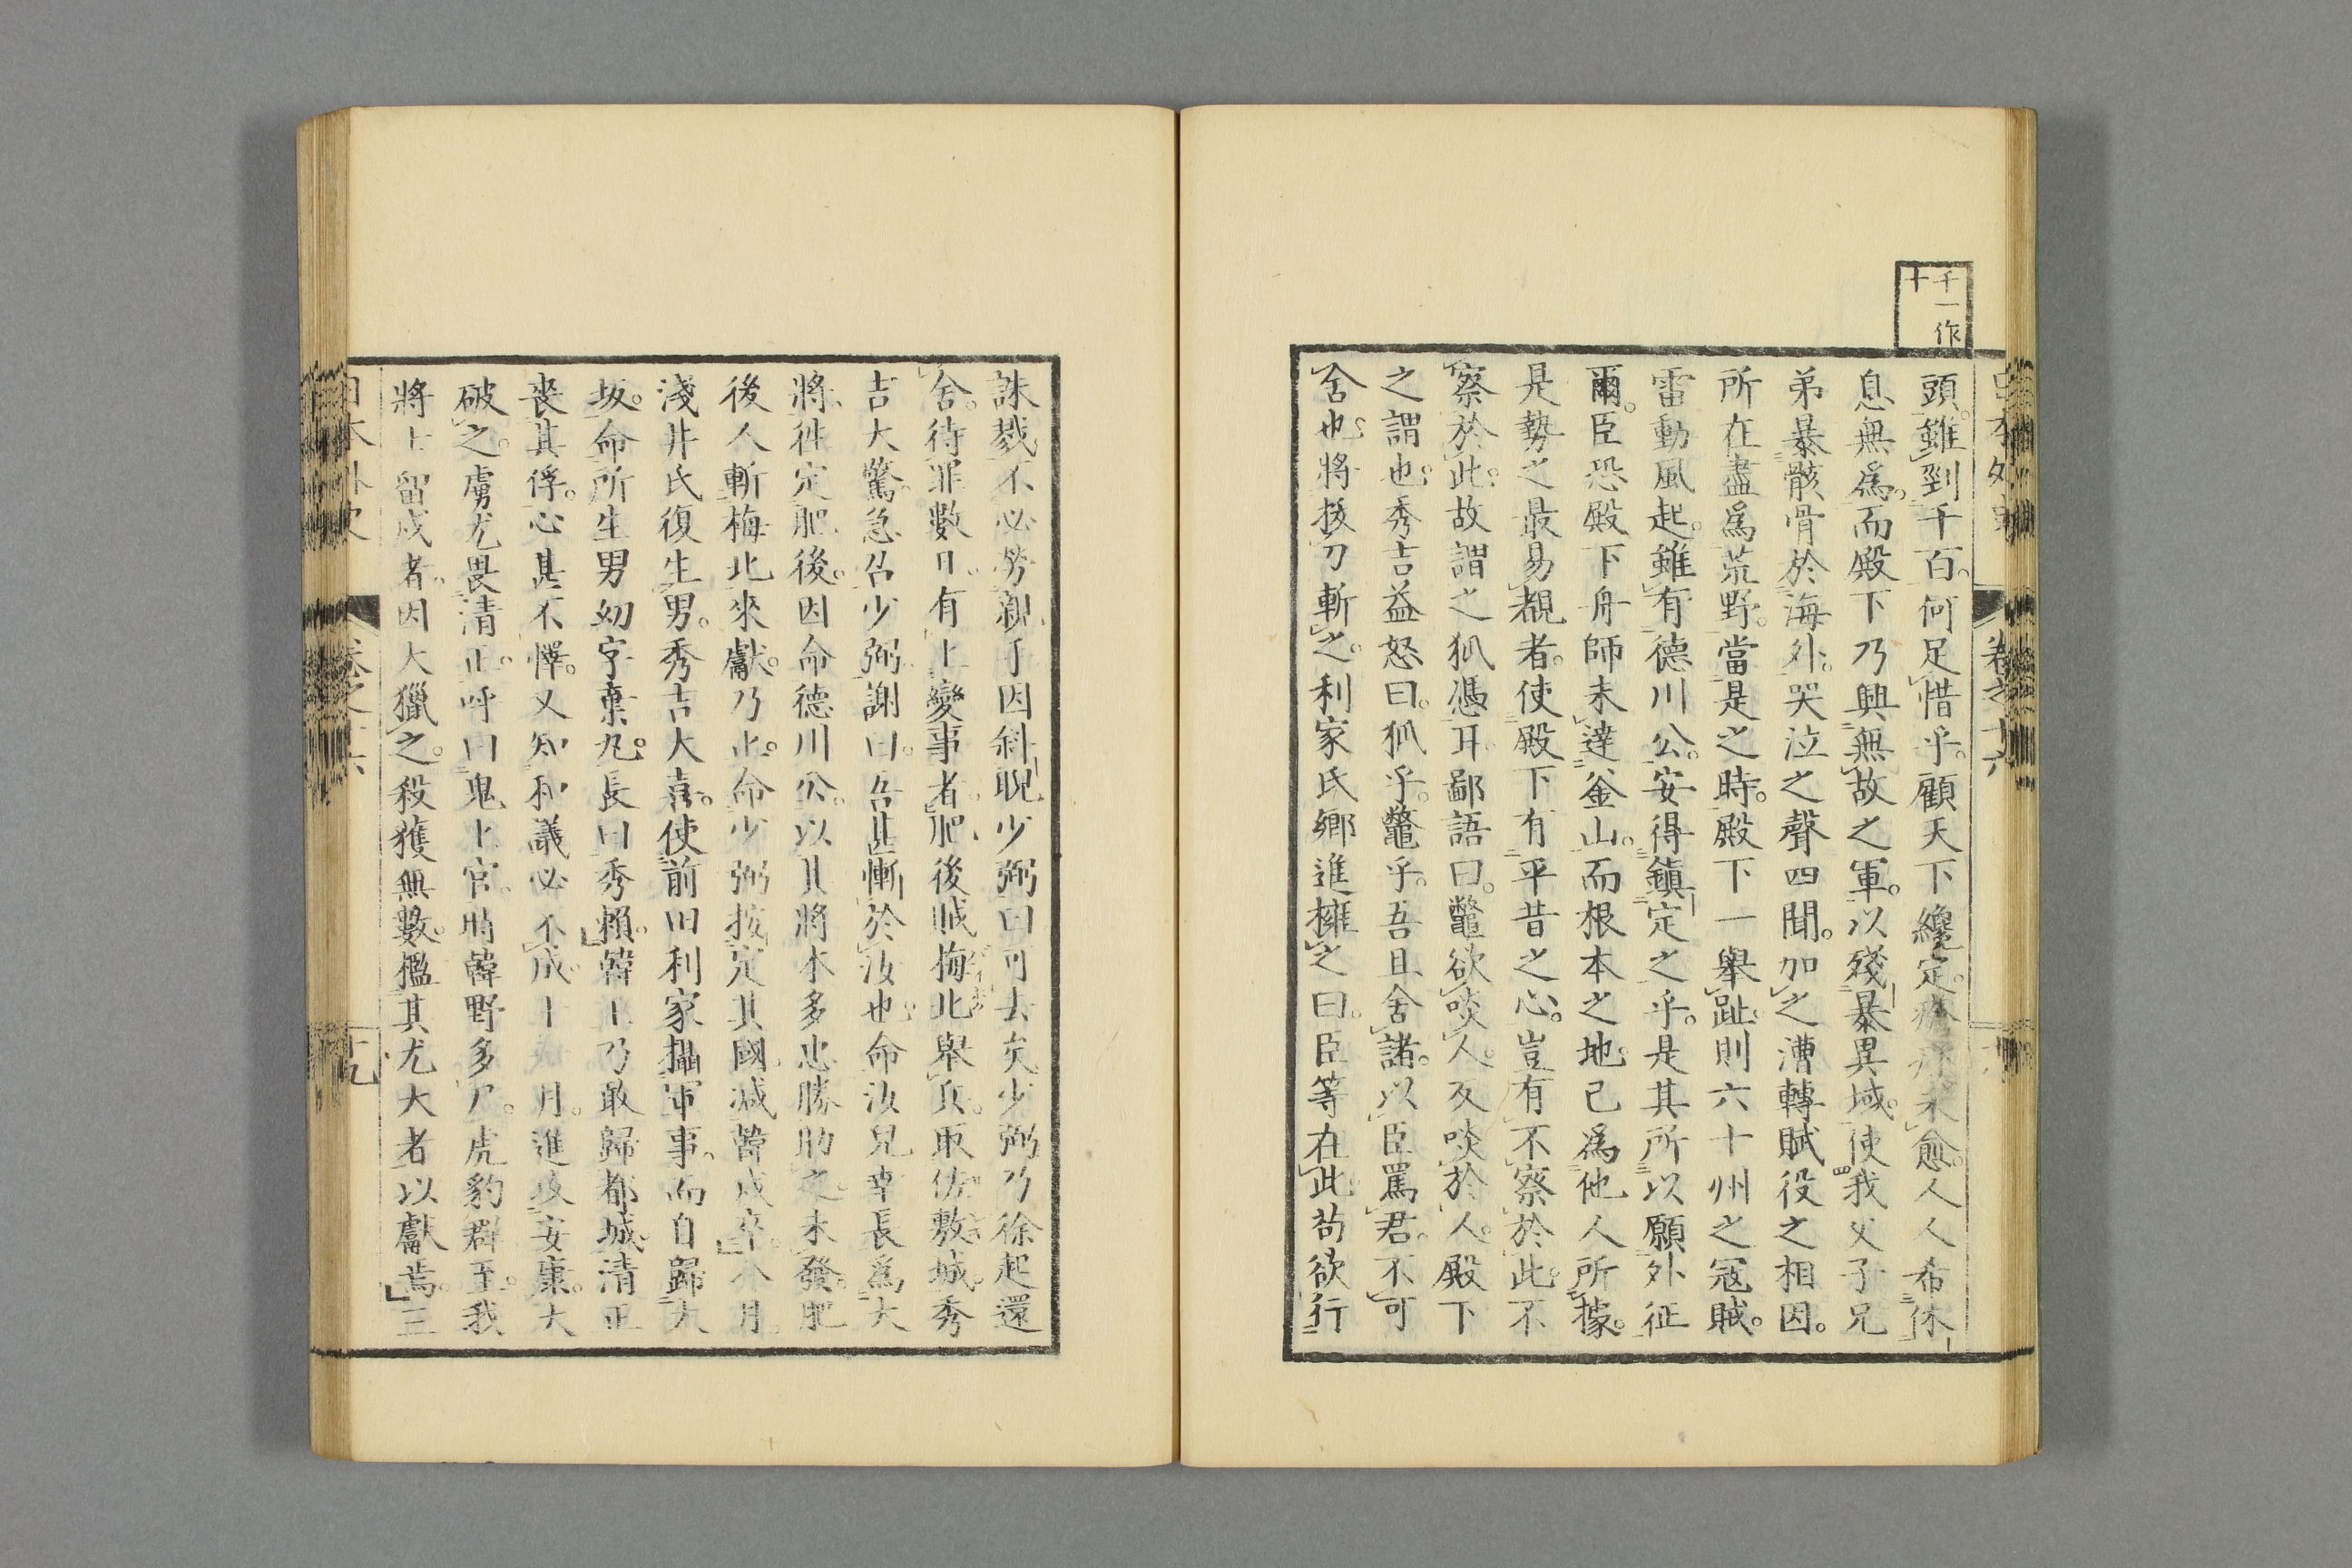 千一作
十
頭。雖剄千百。何足惜乎。顧天下纔定。瘡痍未愈。人人希休
息無爲。而殿下乃興無故之軍。以殘暴異域。使我父子兄
弟暴骸骨於海外。哭泣之聲四聞。加之漕轉賦役之相因。
所在盡爲荒野。當是之時。殿下一舉趾。則六十州之冦賊。
雷動風起。雖有德川公。安得鎭定之乎。是其所以願外征
爾。臣恐殿下舟師未達釜山。而根本之地。已爲他人所據。
是勢之最易覩者。使殿下有平昔之心。豈有不察於此。不
察於此。故謂之狐憑耳。鄙語曰。鼈欲啖人。反啖於人。殿下
之謂也。秀吉益怒曰。狐乎。鼈乎。吾且舍諸。以臣罵君。不可
舍也。將拔刀斬之。利家氏鄉進擁之曰。臣等在此。苟欲行
誅戮。不必勞親手。因斜睨少弼曰。可去矣。少弼乃徐起還
舍。待罪數日。有上變事者。肥後賊梅北舉兵。取佐敷城。秀
吉大驚。急召少弼。謝曰。吾甚慚於汝也。命汝兒幸長爲大
將。徃定肥後。因命德川公。以其將本多忠勝助之。未發。肥
後人斬梅北來獻。乃止。命少弼按定其國。減營戍卒。八月
淺井氏復生男。秀吉大喜。使前田利家攝軍事。而自歸大
坂。命所生男幼字棄丸。長曰秀賴。韓王乃敢歸都城。清正
喪其俘。心甚不懌。又知和議必不成。十一月。進攻安康。大
破之。虜尤畏清正。呼曰鬼上官。時韓野多尸。虎豹群至。我
將士留戍者。因大獵之。殺獲無數。檻其尤大者以獻焉。三
日本外史 卷之十六 十九